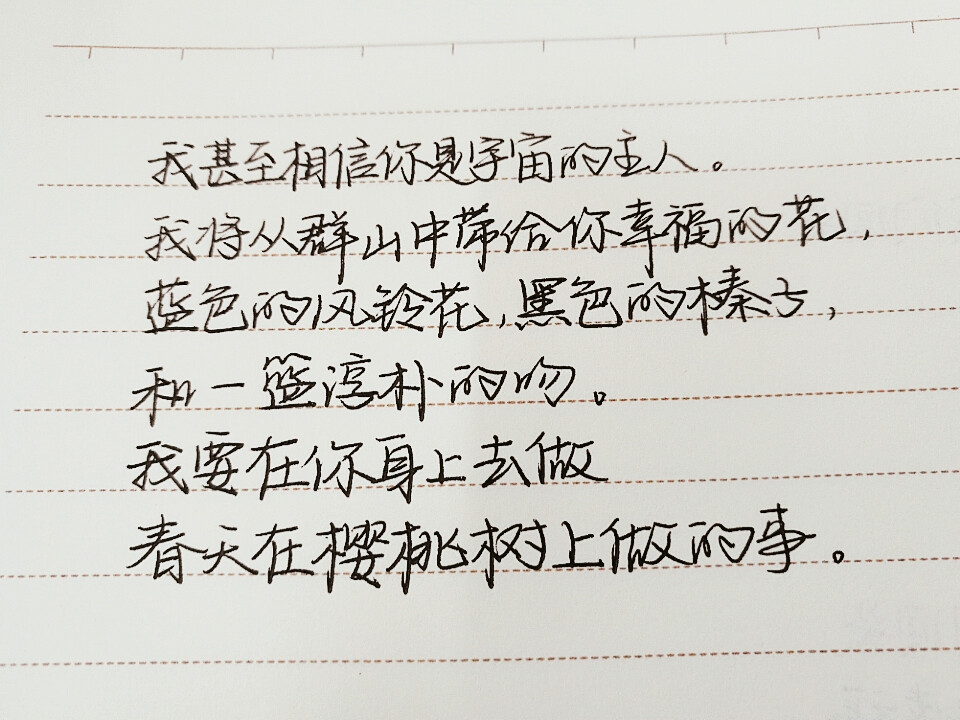 我甚至相信你是宇宙的主人。
我将从群山中带给你幸福的花,
蓝色的风铃花,黑色的榛子,
和一篮淳朴的吻。
我要在你身上去做
春天在樱桃树上做的事。